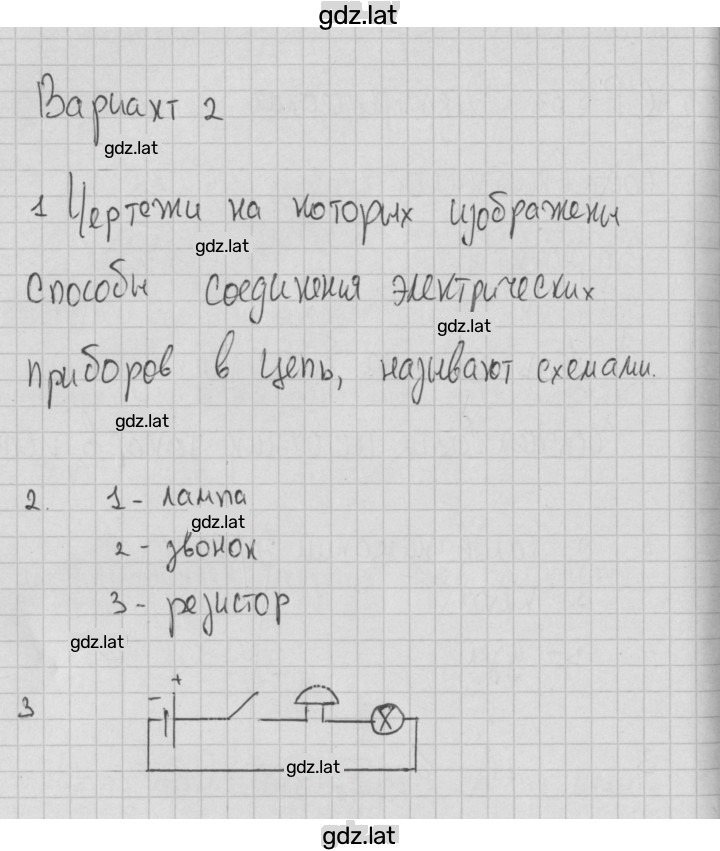 gdz.lat
Вариант 2
gdz.lat
1 Чертежи на которых изображены
gdz.lat
способы соединения электрических
gdz.lat
приборов в цепь, называют схемами.
gdz.lat
2. 1 - лампа
gdz.lat
2 - звонок
3 - резистор
gdz.lat
3
- +
gdz.lat
gdz.lat